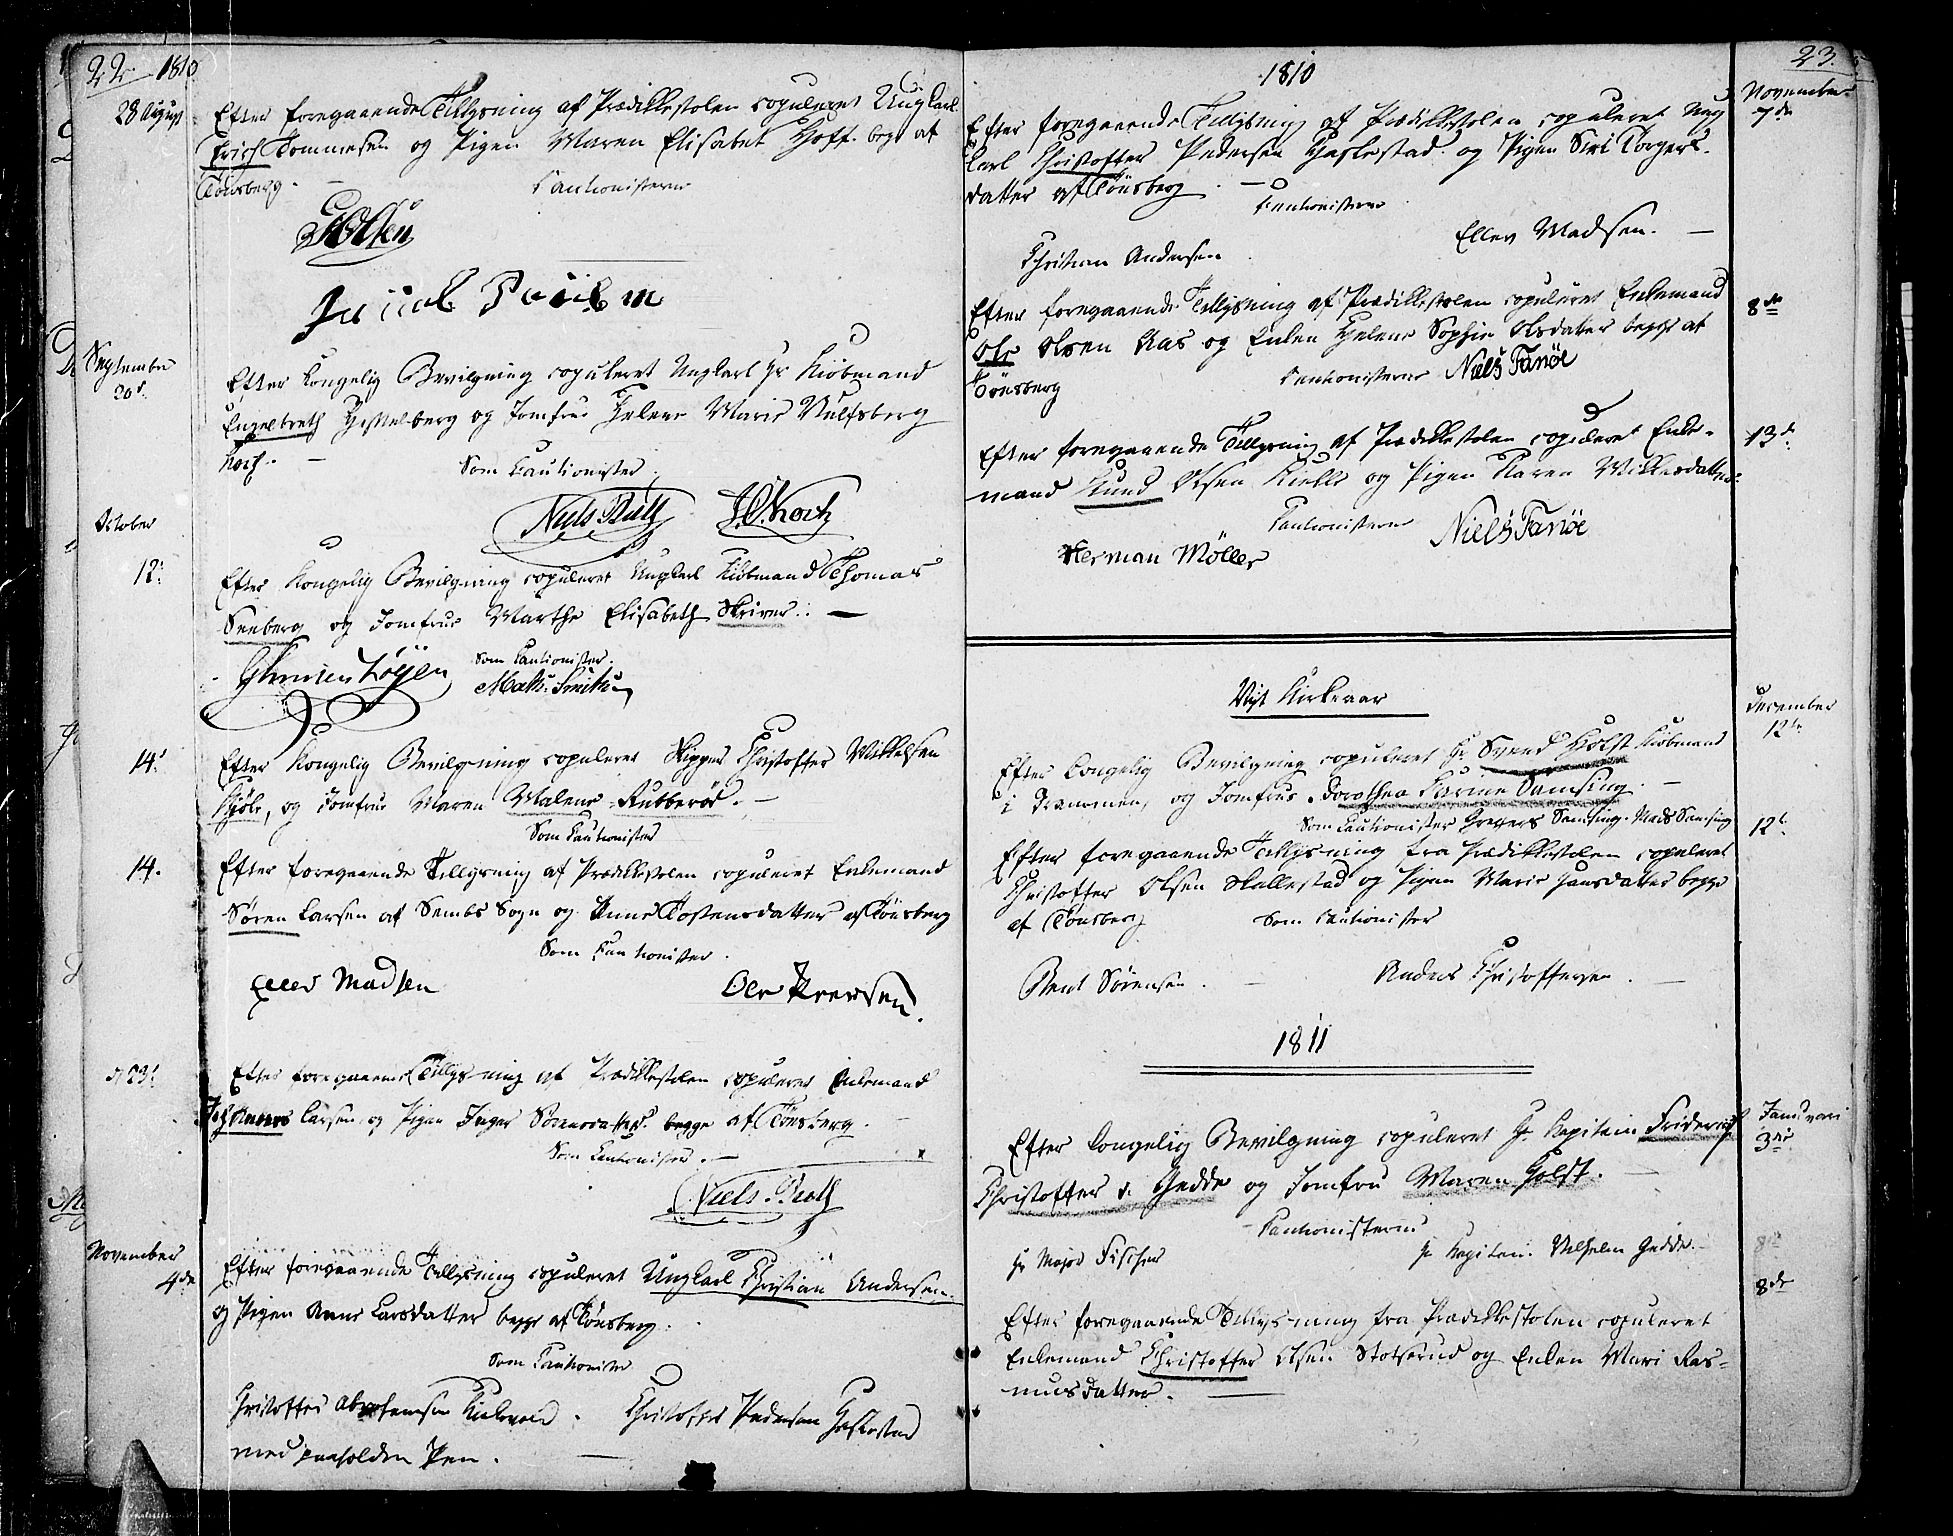 22. 1810
28 August
Efter foregaaende Tillysning af Prædikestolen copuleret Ungkarl
Erich Tommesen og Pigen Maren Elisabet Hoff. begge af
Tønsberg. —
Cautionisterne
September
20d.
Efter Kongelig Bevilgning copuleret Ungkarl Hr Kiøbmand
Engelbreth Hesselberg og Jomfrue Helene Marie Wulfsberg
Koch. —
Som Cautionister.
Niels Buth J.C. Koch
October
12t
Efter Kongelig Bevilgning copuleret Ungkarl Kiøbmand Thomas
Seeberg og Jomfrue Marthe Elisabeth Skriver. —
Som Cautionister.
Løyen Math: Smith
14d
Efter Kongelig Bevilgning copuleret Skipper Christoffer Mikkelsen
og Jomfrue Maren Malene Rubberød. —
Som Cautionister
14.
Efter foregaaende Tillysning af Prædikestolen copuleret Enkemand
Søren Larsen af Sembs Sogn og Anne Tostensdatter af Tønsberg
Som Cautionister.
Ellev Madsen Ole Iversen.
d 23d
Efter foregaaende Tillysning af Prædikestolen copuleret Enkemand
Johannes Larsen og Pigen Inger Sørensdatter begge af Tønsberg.
Som Cautionister. —
Niels Buth
November
4de
Efter foregaaende Tillysning copuleret Ungkarl Christian Andersen
og Pigen Anne Larsdatter begge af Tønsberg.
Som Cautionister
Christoffer Abrahamsen . Christoffer Pedersen Haslestad
med paaholden Pen. —
1810
23.
November
7de
Efter foregaaende Tillysning af Prædikestolen copuleret Ung
Karl Christoffer Pedersen Haslestad og Pigen Siri Torgers-
datter af Tønsberg. —
Cautionisterne
Christian Andersen Ellev Madsen. —
8de
Efter foregaaende Tillysning af Prædikestolen copuleret Enkemand
Ole Olsen Aas og Enken Helene Sophie Olsdatter begge af
Tønsberg Cautionisterne Niels Fanøe
13d.
Efter foregaaende Tillysning af Prædikestolen copuleret Enke-
mand Knud Olsen Kielle og Pigen Karen Mikkelsdatter.
Cautionisterne Niels Fanøe
Herman Møller
Nyt Kirkeaar
December
12te
Efter Kongelig Bevilgning copuleret Hr Svend Holst Kiøbmand
i Drammen, og Jomfrue Dorothea Karine Samsing. —
Som Cautionister Grevers Samsing. Mads Samsing
12t.
Efter foregaaende Tillysning fra Prædikestolen copuleret
Christoffer Olsen Skallestad og Pigen Marie Hansdatter begge
af Tønsberg Som Cautionister
Bent Sørensen. — Anders Christoffersen. —
1811
Januari
3die
Efter Kongelig Bevilgning copuleret Hr Kapitein Friderich
Christoffer v. Gedde og Jomfru Maren Holst. —
Cautionisterne
Hr Major Fischer Hr Kapitein Vilhelm Gedde.
8de
8de
Efter foregaaende Tillysning fra Prædikestolen copuleret
Enkemand Christoffer Olsen Stokerud og Enken Mari Ras-
musdatter. —